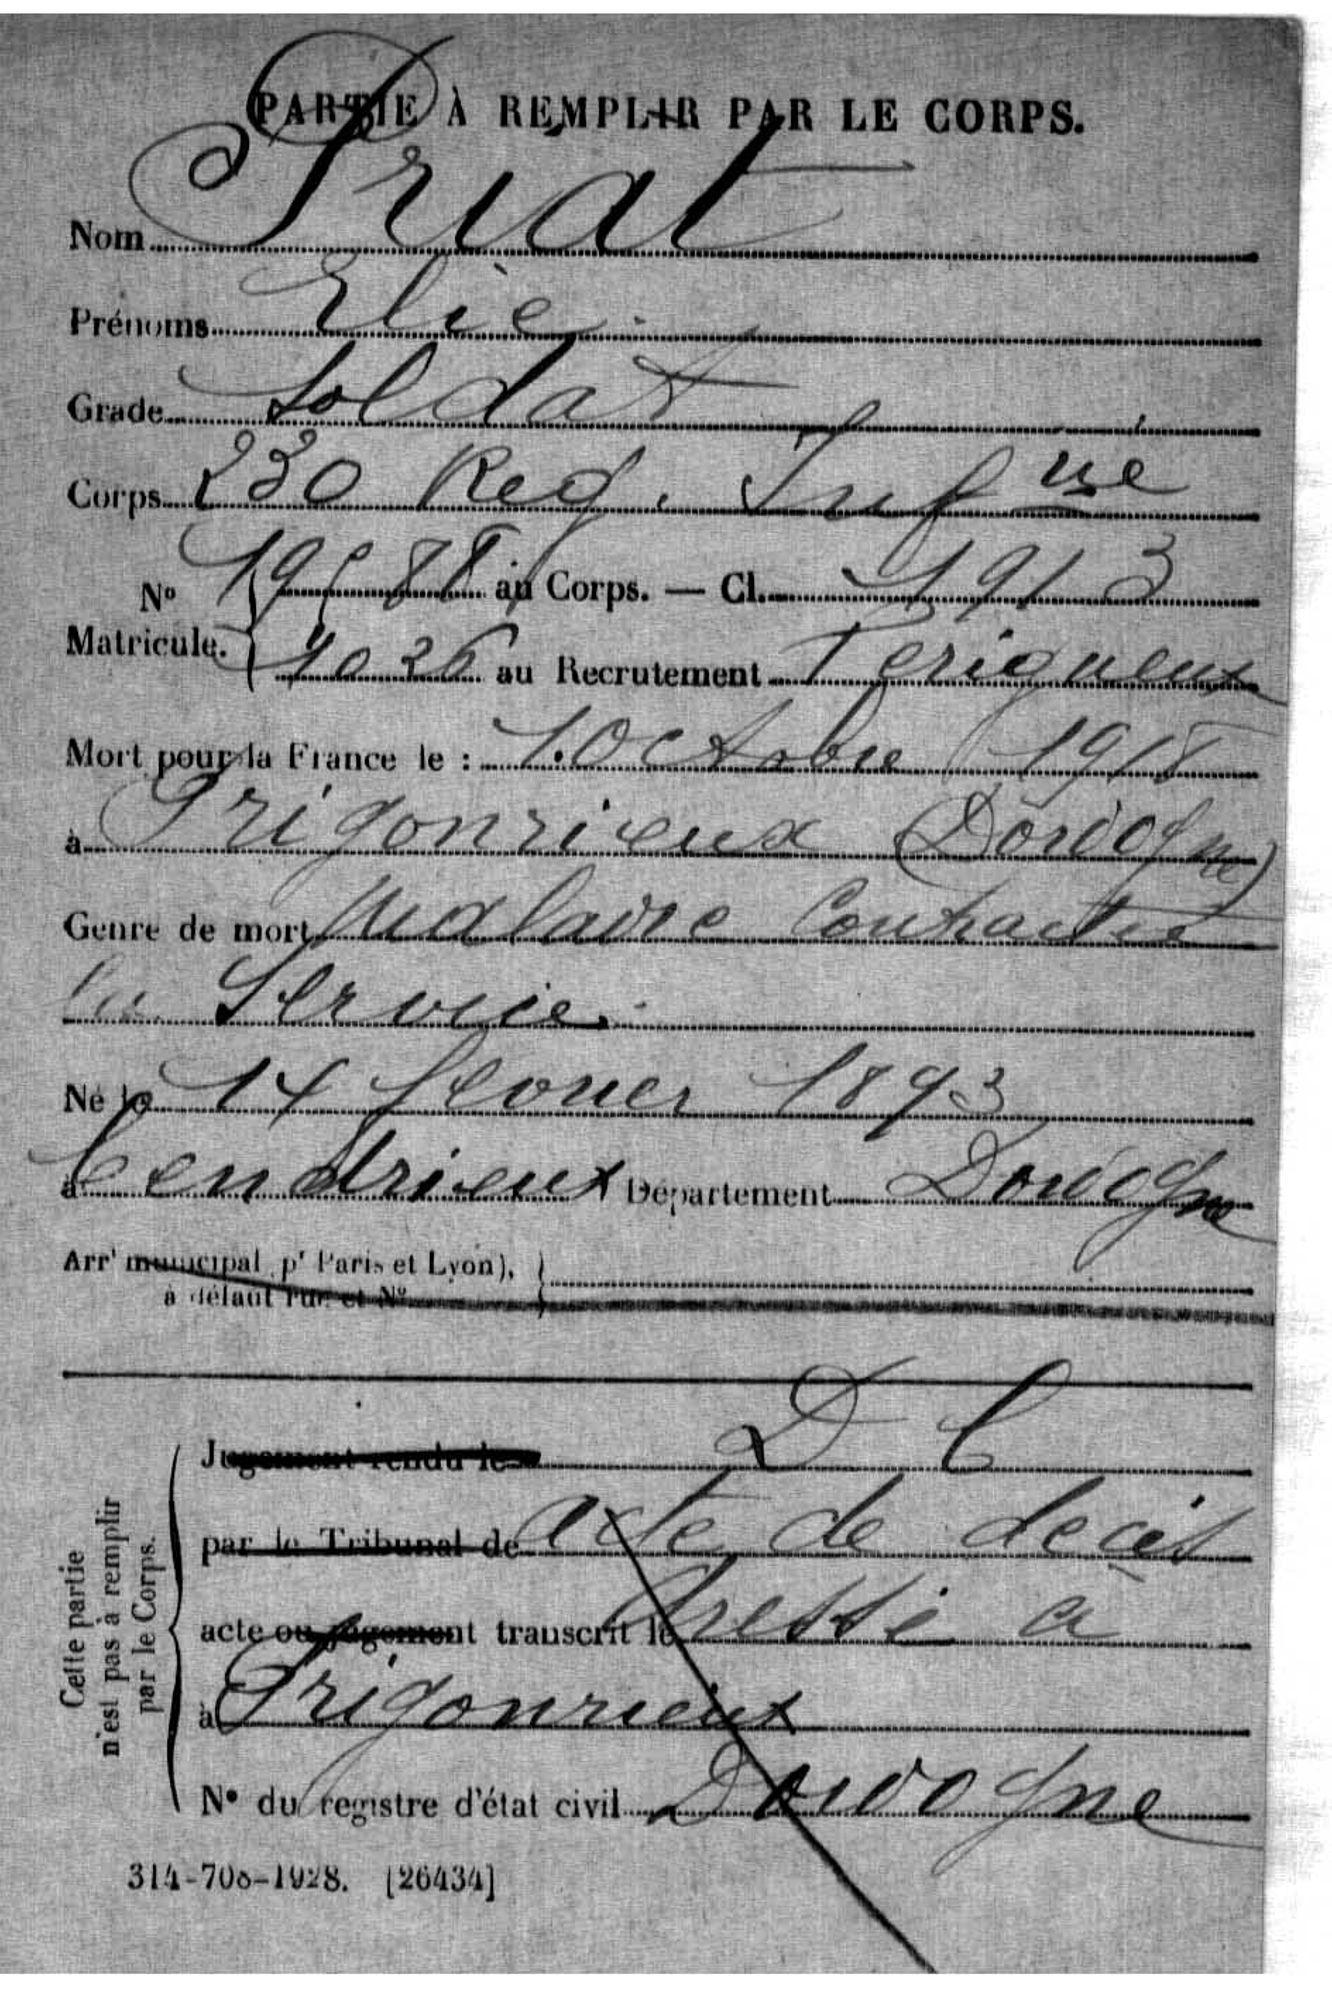 PARTIE À REMPLIR PAR LE CORPS.
Nom Priat
Prénoms Elie.
Grade Soldat
Corps 230 Reg. Infrie
No Matricule. 19588 au Corps. — Cl. 1913
1026 au Recrutement Perigueux
Mort pour la France le : 1 Octobre 1918
à Prigonrieux (Dordogne)
Genre de mort Maladie Contractée
Service.
Né le 14 fevrier 1893
à Cendrieux Département Dordogne
Arrt municipal pr Paris et Lyon),
à défaut rue et No
D C
Jugement rendu le
par le Tribunal de acte de decès
acte ou jugement transcrit le dressé a
à Prigonrieux
No du registre d'état civil Dordogne
Cette partie
n'est pas à remplir
par le Corps.
314-708-1928. [26434]